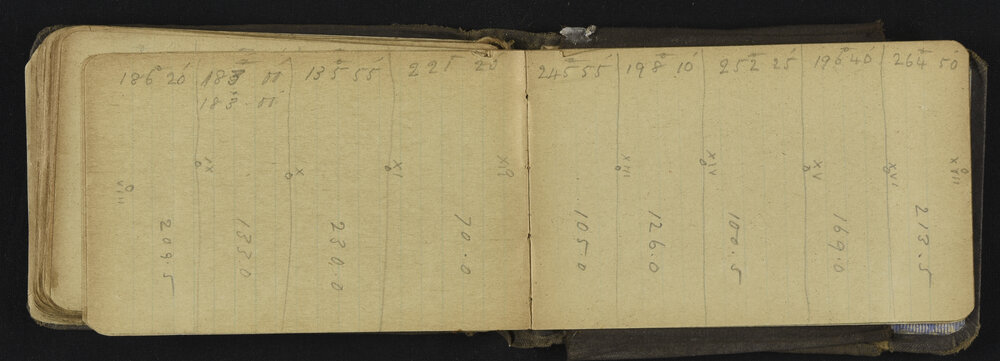 186° 20' 183° 00' 135° 55' 225° 20'
183° 00'
VIII IX X XI XII
209.5 133.0 230.0 70.0
245° 55' 198° 10' 252° 25' 196° 40' 264° 50'
XIII XIV XV XVI XVII
105.0 126.0 100.5 169.0 213.5